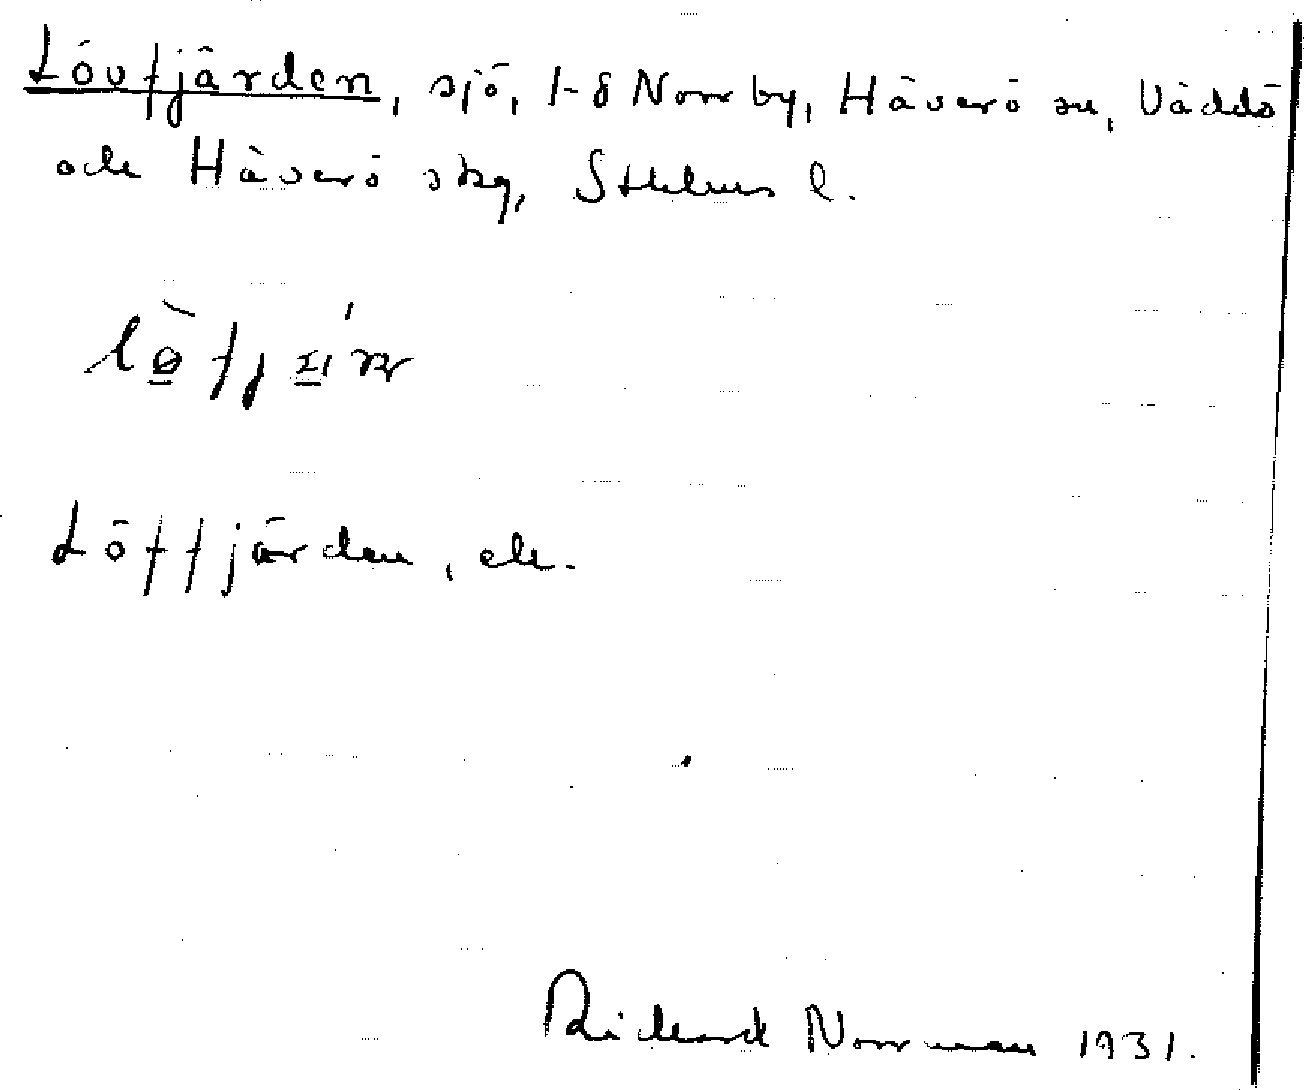 Lövfjärden, sjö, 1-8 Norrby, Häverö sn, Väddö
och Häverö skg, Sthlms l.
Löffjärden, ek.
Richard Norrman 1931.